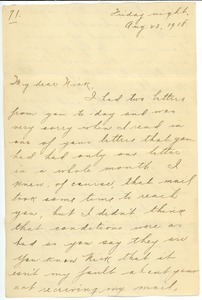 71.
Friday night,
Aug 23, 1918
My dear Nick,
I had two letters
from you to-day and was
very sorry when I read in
one of your letters that you
had had only one letter
in a whole month. I
knew, of course, that mail
took some time to reach
you, but I didn't think
that conditions were as
bad as you say they are
You know Nick that it
isn't my fault about your
not receiving my mail.